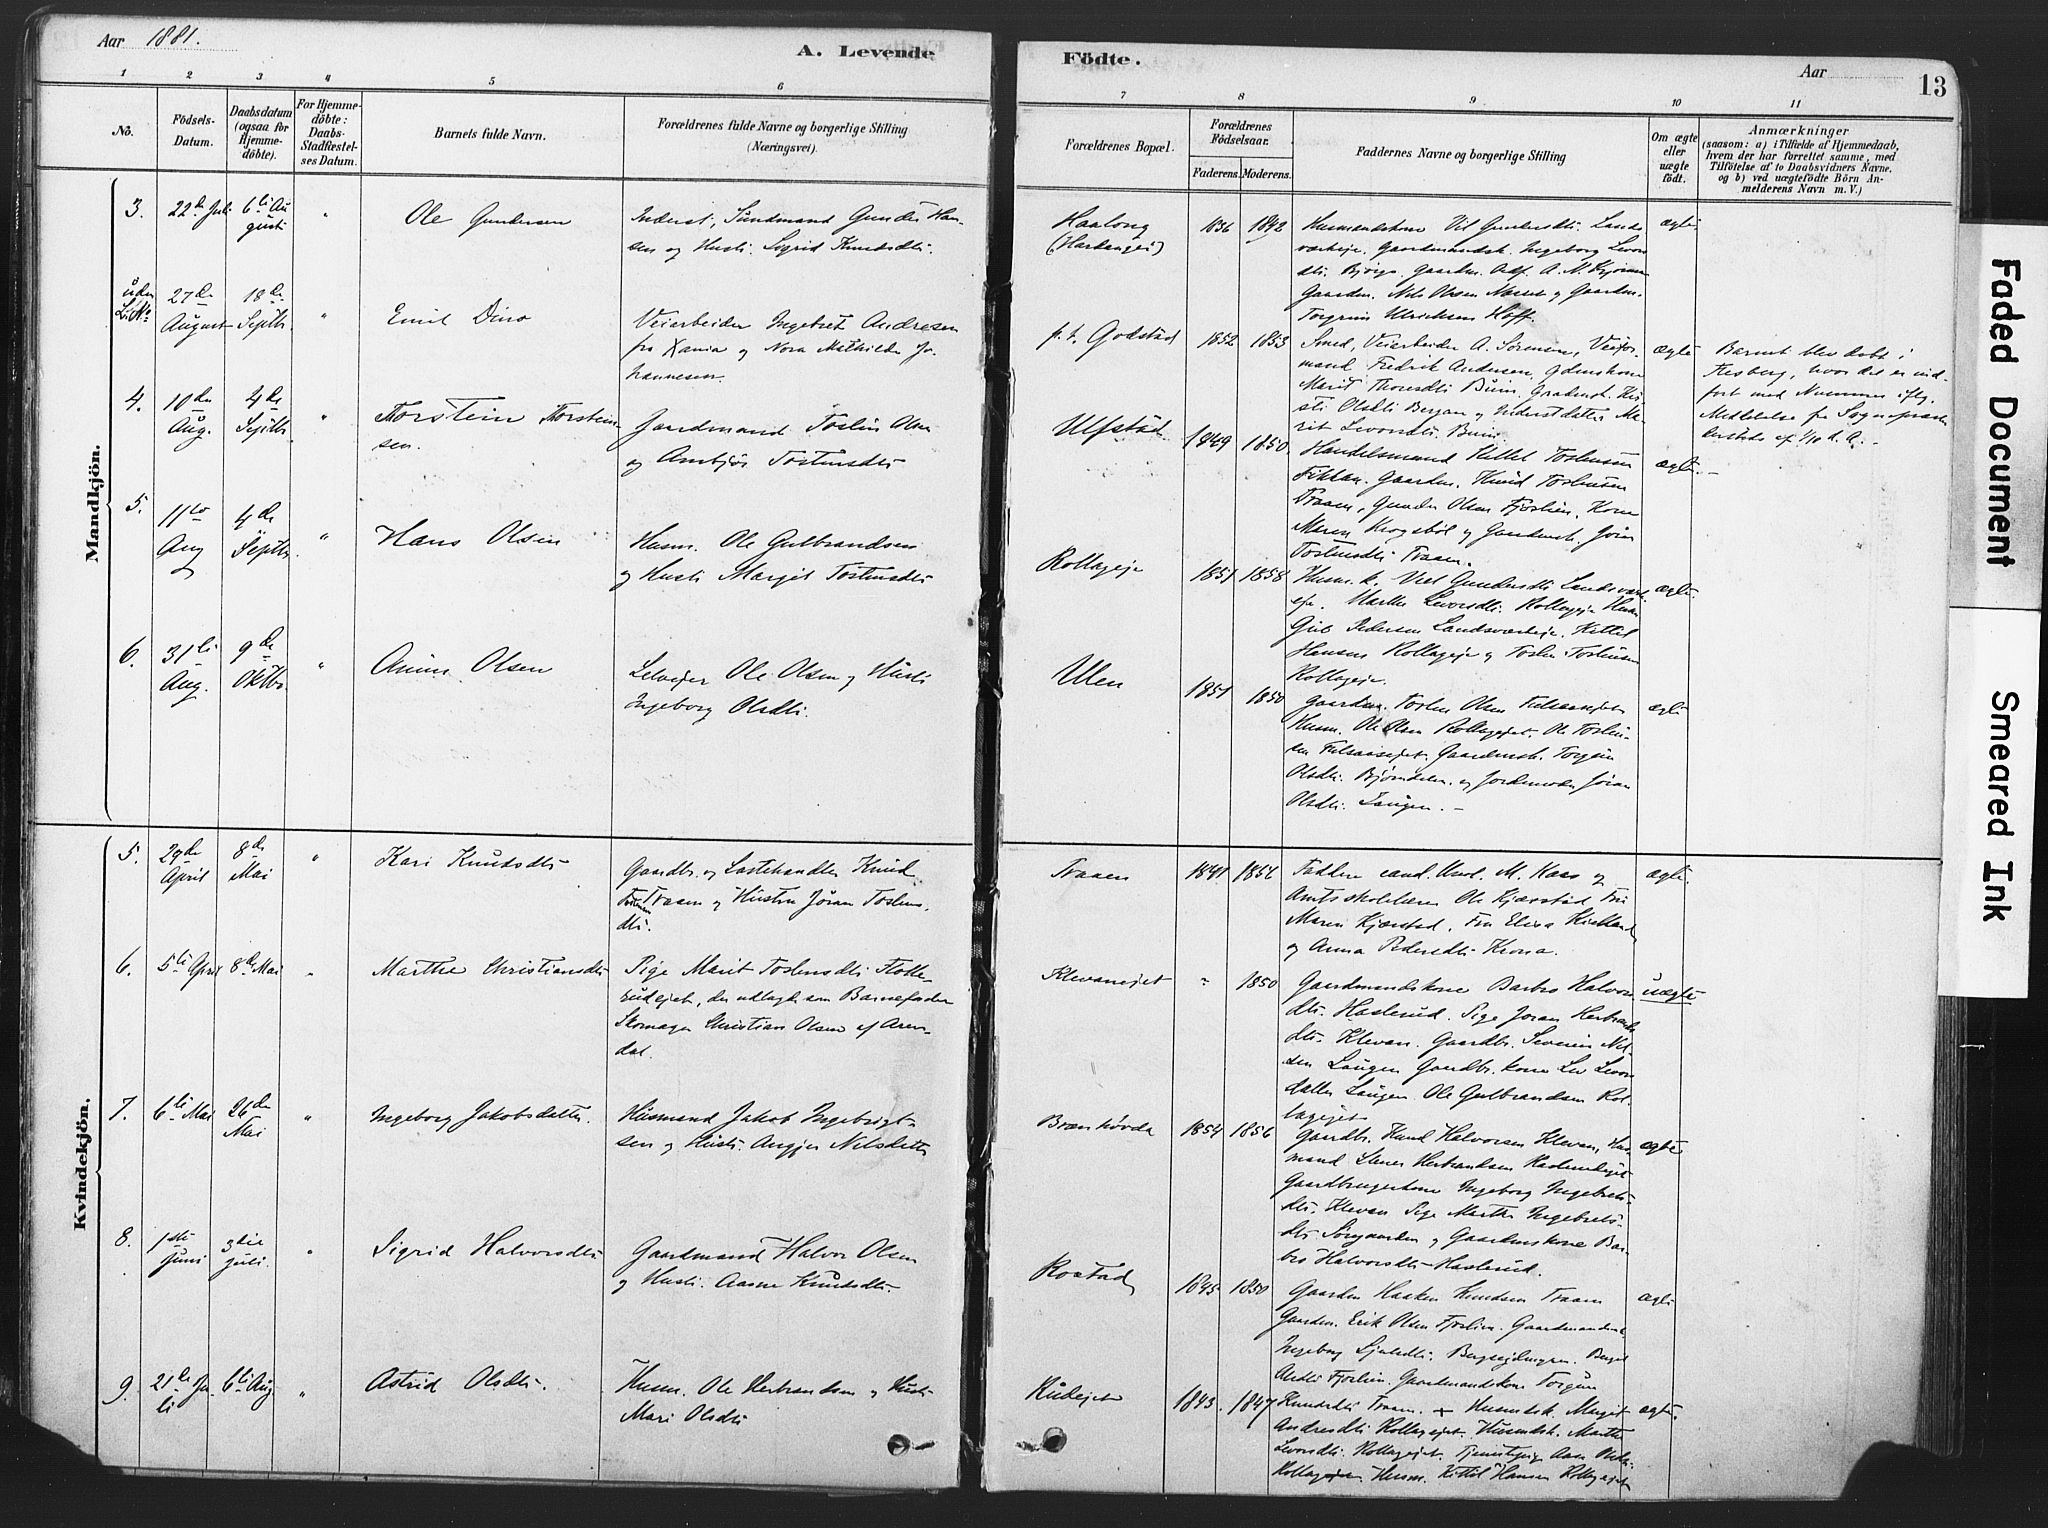 Aar 1881.
A. Levende
Födte.
Aar
13
1 2 3 4 5 6 7 8 9 10 11
No.
Födsels-
Datum.
Daabsdatum
(ogsaa for
Hjemme-
döbte).
For Hjemme-
döbte:
Daabs-
Stadfæstel-
ses Datum.
Barnets fulde Navn.
Forældrenes fulde Navne og borgerlige Stilling
(Næringsvei).
Forældrenes Bopæl.
Forældrenes
Födselsaar.
Faderens. Moderens.
Faddernes Navne og borgerlige Stilling
Om ægte
eller
uægte
födt.
Anmærkninger
(saasom: a) i Tilfælde af Hjemmedaab,
hvem der har forrettet samme, med
Tilföielse af to Daabsvidners Navne,
og b) ved uægtefödte Börn An-
melderens Navn m. V.)
Mandkjön.
3.
22de Juli
6te Au
gust
"
Ole Gundersen
Inderst, Sundmand Gunder Han-
sen og Hustr. Sigrid Knudsdtr.
Haalong
(Hardanger)
1836 1842
Husmandskone Gundersdtr. Lands
værkeje. Gaardmandsk. Ingeborg Levor
dtr. Bjørge. Gaardm. Adf. A. M.
Gaardm. Nils Olsen og Gaardm.
Torgrim Ulricksen Hoff.
ægte
uden
L. No
27de
August
18de
Septbr.
"
Emil Dino
Veiarbeider Ingebret Andresen
fra Xania og Nora Mathilde Jo-
hannesen.
p.t. Godstad
1852 1853
Smed, Veiarbeider A. Sörensen, Veifor-
mand Fredrik Andersen,
Marit Thoresdtr. Buin, Gaardmsk.
Olsdtr. Bergan og Inderst datter Ma-
rit Levorsdtr. Buin.
ægte
Barnet blev døbt i
Flesberg, hvor det er ind-
ført med Nummer iflg.
Meddelelse fra Sognepræst
4.
10de
Aug.
4de
Septbr.
"
Thorstein Thorstein-
sen.
Gaardmand Tostein Olsen
og Ambjør Tosteinsdtr.
Ulfstad
1849 1850
Handelsmand Kittel Tosteinsen
Gaardm. Knud Tosteinsen
Traaen, Gunder Olsen Fjøslien. Kone
Maren Krogsbøl og Gaardmsk. Jøran
Tosteinsdtr. Traaen.
ægte
5.
11te
Aug
4de
Septbr.
"
Hans Olsen
Husm. Ole Gulbrandsen
og Hustr. Margit Tosteinsdtr
Rollageje
1851 1858
Husm. k. Gundersdtr. Landsværk
eje. Marthe Levorsdtr. Rollageje
Pedersen Landsværkeje. Kittel
Hansen Rollageje og Tosten Tostensen
Rollageje.
ægte
6.
31te
Aug.
9de
Oktbr.
"
Olsen
Selveier Ole Olsen og Hustr.
Ingeborg Olsdtr.
Ulen
1851 1850
Gaardm. Tosten Olsen
Husm. Ole Olsen Rollagejet. Ole Tosten-
sen Gaardmsk. Torgun
Olsdtr. Bjørndalen og Jordemoder Jøran
Olsdtr. Laugen. –
ægte
Kvindekjön.
5.
29de
April
8de
Mai
"
Kari Knudsdtr
Gaardbr. og Lastehandler Knud
Tostensen Traaen og Hustru Jøran Tostens-
dtr.
Traaen
1841 1852
Faddere cand. theol. M. Kaas og
Amtsskolelærer Ole Kjærstad, Fru
Maren Kjærstad. Frk Elisa Kielland
og Anna Pedersdtr Krona.
ægte.
6.
5te April
8de Mai
"
Marthe Christiansdtr
Pige Marit Tostensdtr Flotte-
rudejet, der udlagde som Barnefader
Skomager Christian Olsen af Aren-
dal.
Klevanejet
" 1850
Gaardmandskone Barbro Halvors-
dtr. Haslerud. Pige Jøran Herbrands
dtr. Klevan. Gaardbr. Severin Nil-
sen Laugen Gaardbr. kone Liv Levors
datter Laugen. Ole Gulbrandsen Rol-
lagejet.
uægte
7.
6te Mai
26de
Mai
"
Ingeborg Jakobsdatter.
Husmand Jakob Ingebrigt-
sen og Hustr. Angjer Nilsdatter
Brænhøvda
1854 1856
Gaardbr. Knud Halvorsen Klevan, Hus-
mand Stener Herbrandsen Haslerudejet
Gaardbrugerkone Ingeborg Ingebrets-
dtr. Klevan Pige Marthe Ingebrets-
dtr. Sørgaarden og Gaardmskone Bar-
bro Halvorsdtr. Haslerud.
ægte
8.
1ste
Juni
3die
Juli.
"
Sigrid Halvorsdtr
Gaardmand Halvor Olsen
og Hustr. Aasne Knudsdtr.
Rostad
1845 1850
Gaardm Haaken Knudsen Traaen
Gaardm. Erik Olsen Fjøslien. Gaardmandsk.
Ingeborg Berget
Fjøslien. Gaardmandskone Torgun
Knudsdtr Traaen.
ægte
9.
21de Ju-
li
6te Aug
"
Astrid Olsdtr.
Husm. Ole Herbrandsen og Hustr
Mari Olsdtr
Rudejet
1843. 1847
Husmdsk. Margit
Andresdtr Rollagejet. Husmdsk. Marthe
Levorsdtr. Rollagejet. Tjenestepige
Rollageje Husm. Kittil Hansen Rollagejet
ægte.
Faded Document
Smeared Ink